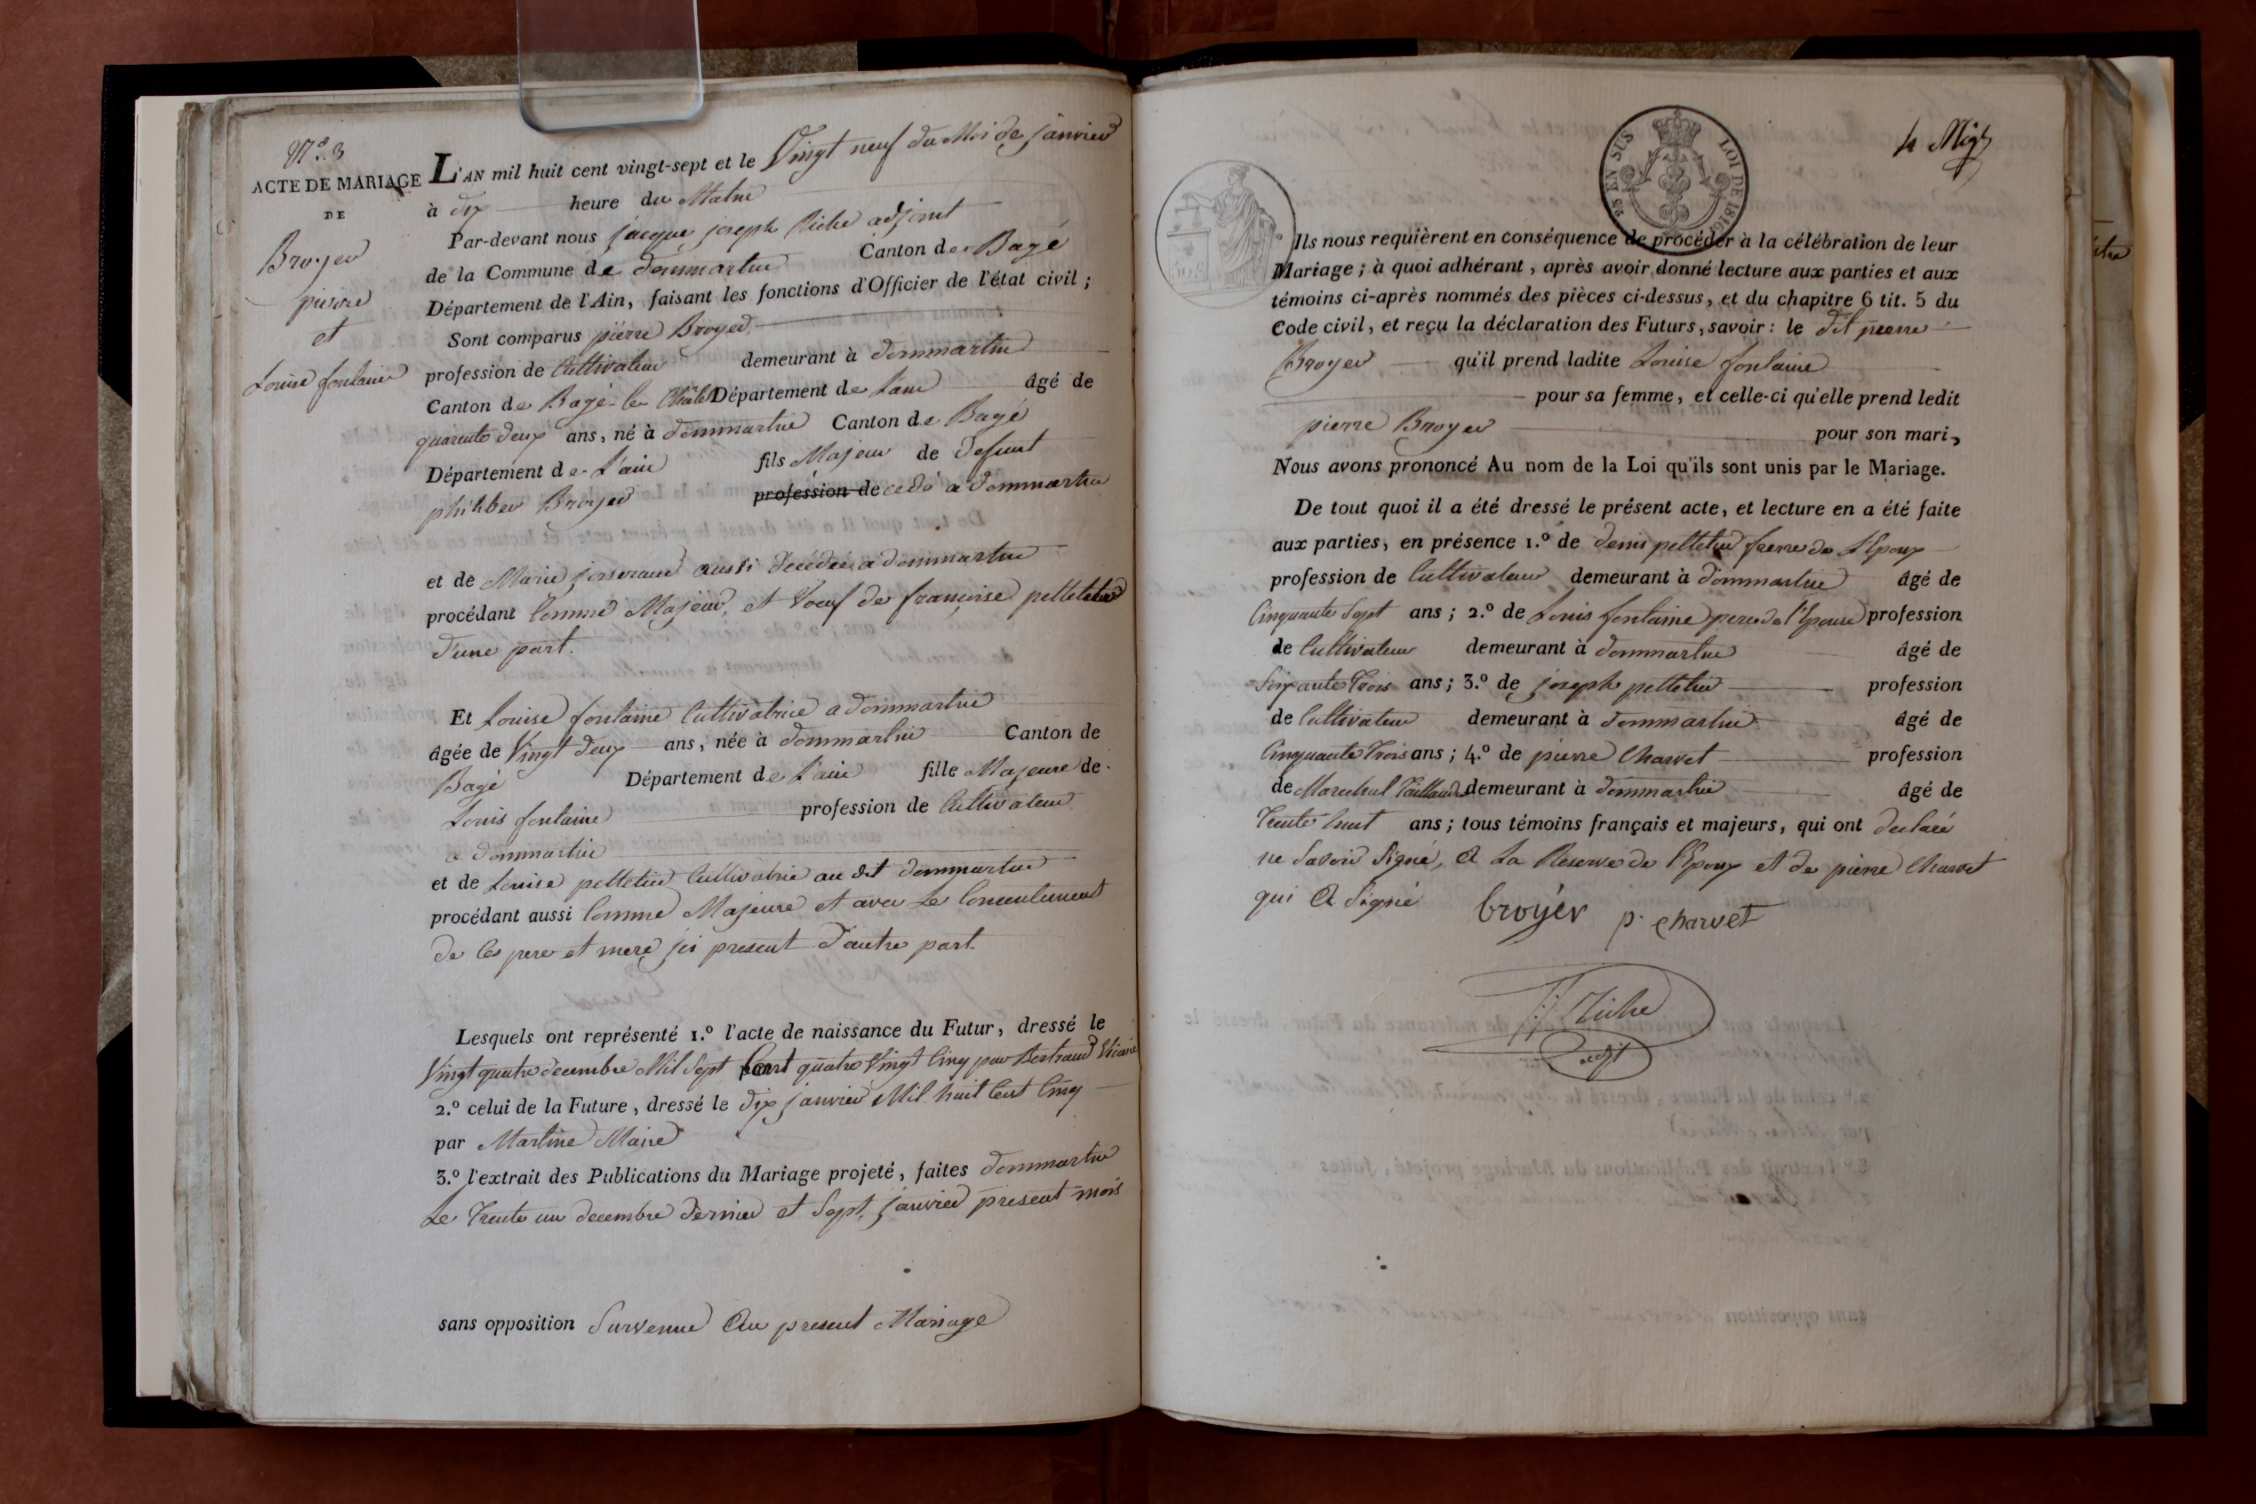 N.o 3
ACTE DE MARIAGE
DE
Broyer
pierre
et
Louise fontaine
L'AN mil huit cent vingt-sept et le Vingt neuf du Moi de janvier
à dix heure du Matin
Par-devant nous jacque joseph Riche adjoint
de la Commune de dommartin Canton de Bagé
Département de l'Ain, faisant les fonctions d'Officier de l'état civil ;
Sont comparus pierre Broyer
profession de Cultivateur demeurant à dommartin
Canton de Bagé-le Châtel Département de L'ain âgé de
quarante deux ans, né à dommartin Canton de Bagé
Département de L'ain fils Majeur de defunt
philiber Broyer profession decedé a dommartin
et de Marie josserand aussi decedée a dommartin
procédant Comme Majeur, et Voeuf de françoise pelletier
d'une part.
Et Louise fontaine Cultivatrice a dommartin
âgée de Vingt deux ans, née à dommartin Canton de
Bagé Département de L'ain fille Majeure de
Louis fontaine profession de Cultivateur
a dommartin
et de Louise pelletier Cultivatrice au dit dommartin
procédant aussi Comme Majeure et avec Le Consentement
de Ces pere et mere jci present d'autre part.
Lesquels ont représenté 1.o l'acte de naissance du Futur, dressé le
Vingt quatre decembre Mil Sept Cent quatre Vingt Cinq par Bertrand Vicaire
2.o celui de la Future, dressé le dix janvier Mil huit Cent Cinq
par Martine Maire
3.o l'extrait des Publications du Mariage projeté, faites dommartin
Le Trente un decembre dernier et Sept janvier present mois
sans opposition Survenue Au present Mariage
EN SUS
LOI DE 1816
Ils nous requièrent en conséquence de procéder à la célébration de leur
Mariage ; à quoi adhérant, après avoir donné lecture aux parties et aux
témoins ci-après nommés des pièces ci-dessus, et du chapitre 6 tit. 5 du
Code civil, et reçu la déclaration des Futurs, savoir : le dit pierre
Broyer qu'il prend ladite Louise fontaine
pour sa femme, et celle-ci qu'elle prend ledit
pierre Broyer pour son mari,
Nous avons prononcé Au nom de la Loi qu'ils sont unis par le Mariage.
De tout quoi il a été dressé le présent acte, et lecture en a été faite
aux parties, en présence 1.o de denis pelletier frerre de L'Epoux
profession de Cultivateur demeurant à dommartin âgé de
Cinquante Sept ans ; 2.o de Louis fontaine pere de l'Epouse profession
de Cultivateur demeurant à dommartin âgé de
Soixante Trois ans ; 3.o de joseph pelletier profession
de Cultivateur demeurant à dommartin âgé de
Cinquante Trois ans ; 4.o de pierre Charvet profession
de Marechal Taillandier demeurant à dommartin âgé de
Trente huit ans ; tous témoins français et majeurs, qui ont declaré
ne Savoir Signé, A La Reserve de l'Epoux et de pierre Charvet
qui A Signé
broyer p. charvet
Riche
adjt